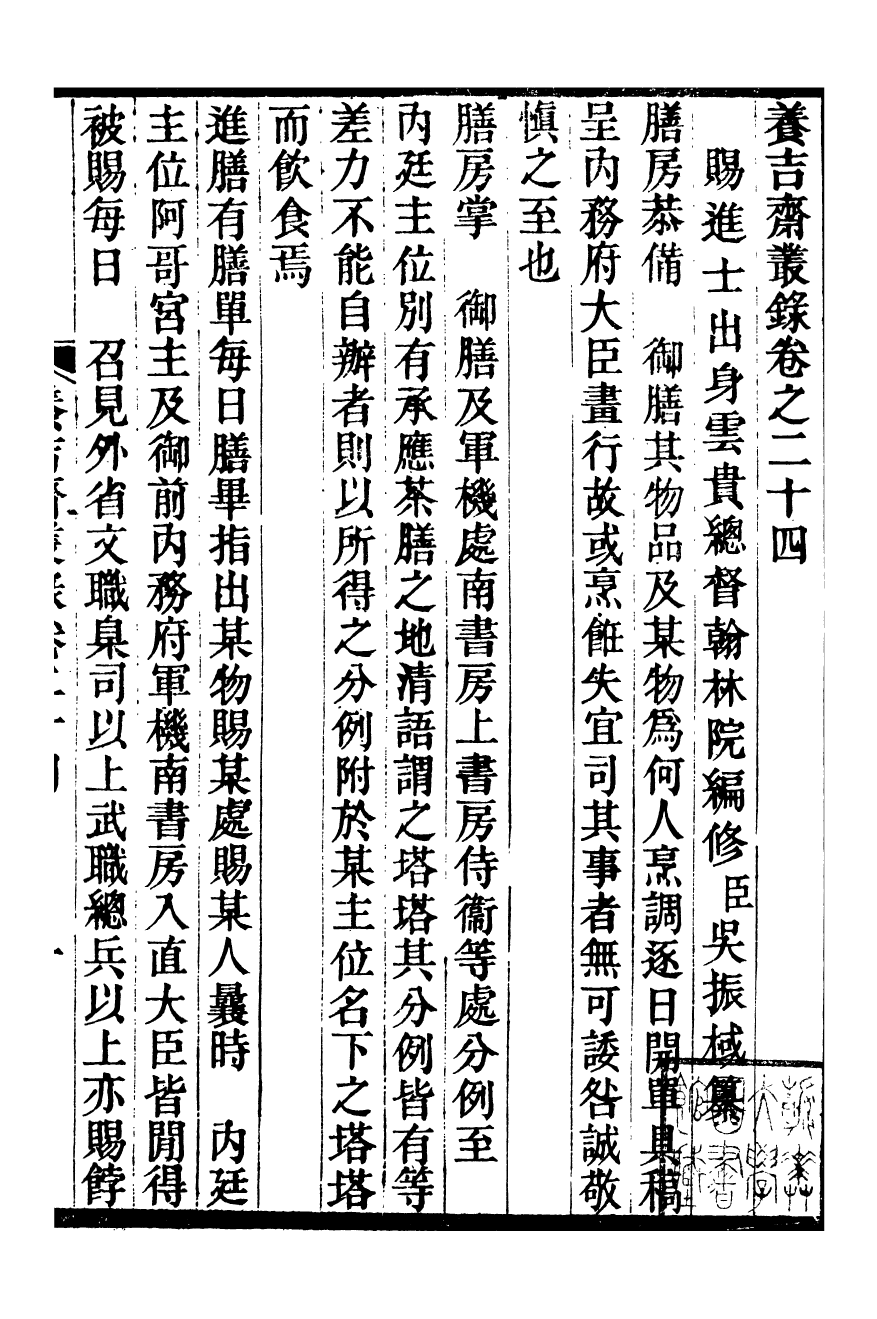 養吉齋叢錄卷之二十四
賜進士出身雲貴總督翰林院編修臣吳振棫纂
膳房恭備　御膳其物品及某物爲何人烹調逐日開單具稿
呈內務府大臣畫行故或烹飪失宜司其事者無可諉咎誠敬
愼之至也
膳房掌　御膳及軍機處南書房上書房侍衞等處分例至
內廷主位別有承應茶膳之地清語謂之塔塔其分例皆有等
差力不能自辦者則以所得之分例附於某主位名下之塔塔
而飮食焉
進膳有膳單每日膳畢指出某物賜某處賜某人曩時　內廷
主位阿哥宮主及御前內務府軍機南書房入直大臣皆閒得
被賜每日　召見外省文職臬司以上武職總兵以上亦賜餑